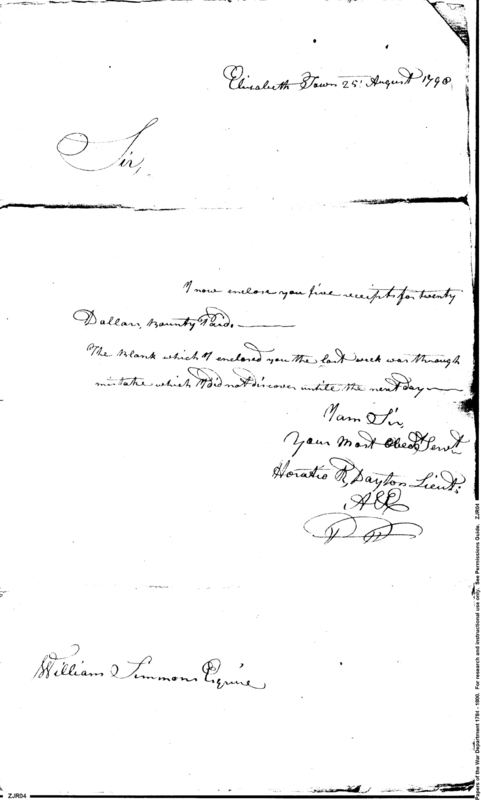 Elizabeth Town 25: August 1798
Sir,
I now enclose you five receipts for twenty
Dollars, Bounty Paid.
The Blank which I enclosed you the last week was through
mistake which I did not discover untile the next day
I am Sir,
Your Most Obedt. Servt.
Horatio R, Dayton Lieut:
William Simmons Esquire
ZJR04
Papers of the War Department 1784 - 1800. For research and instructional use only. See Permissions Guide. ZJR04